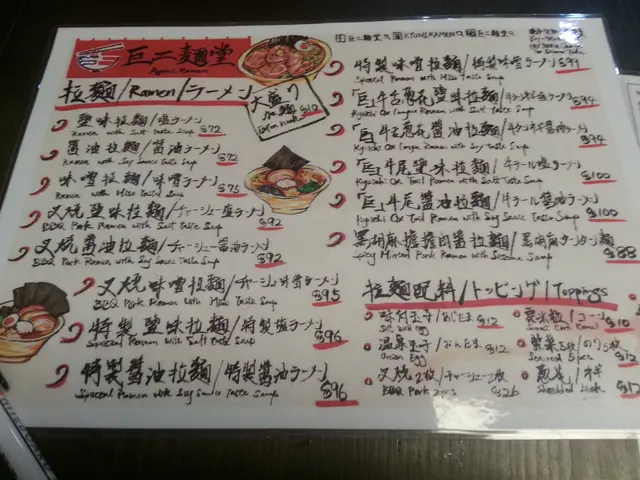 巨二麵堂
Kyuni Ramen
拉麵/Ramen/ラーメン
大盛り
加麵
Extra noodle
$10
鹽味拉麵/塩ラーメン $72
Ramen with Salt taste Soup
醬油拉麵/醤油ラーメン $72
Ramen with Soy Sauce taste Soup
味噌拉麵/味噌ラーメン $75
Ramen with Miso taste Soup
叉燒鹽味拉麵/チャーシュー塩ラーメン $92
BBQ Pork Ramen with Salt taste Soup
叉燒醬油拉麵/チャーシュー醤油ラーメン $92
BBQ Pork Ramen with Soy Sauce taste Soup
叉燒味噌拉麵/チャーシュー味噌ラーメン $95
BBQ Pork Ramen with Miso taste Soup
特製鹽味拉麵/特製塩ラーメン $96
Special Ramen with Salt taste Soup
特製醬油拉麵/特製醤油ラーメン $96
Special Ramen with Soy Sauce taste Soup
巨二麵堂 KYUNIRAMEN 巨二麵堂
特製味噌拉麵/特製味噌ラーメン $99
Special Ramen with Miso taste Soup
「巨」牛舌蔥花鹽味拉麵/牛タンネギ塩ラーメン $94
Ox Tongue Ramen with Salt taste Soup
「巨」牛舌蔥花醬油拉麵/牛タンネギ醤油ラーメン $94
Ox Tongue Ramen with Soy Sauce taste Soup
「巨」牛尾鹽味拉麵/牛テール塩ラーメン $100
Ox Tail Ramen with Salt taste Soup
「巨」牛尾醬油拉麵/牛テール醤油ラーメン $100
Ox Tail Ramen with Soy Sauce taste Soup
黑胡麻擔擔肉醬拉麵/黒胡麻タンタン麺 $88
Spicy Minced Pork Ramen with Sesame Soup
拉麵配料/トッピング/Toppings
味付玉子/あじたま $12
Salt boil egg
温泉玉子/おんたま $12
Onsen Egg
叉燒2枚/チャーシュー2枚 $26
BBQ Pork 2pcs
粟米粒/コーン $10
Sweet Corn Kernel
紫菜5枚/のり5枚 $12
Seaweed 5pcs
Shredded Leek $12